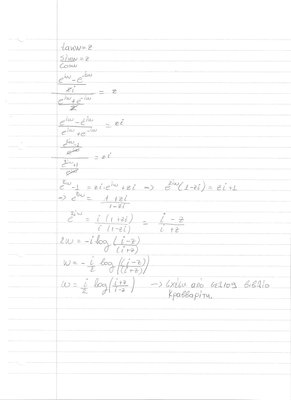 tanw = z
sinw/cosw = z
((e^{iw} - e^{-iw})/2i)/((e^{iw} + e^{-iw})/2) = z
(e^{iw} - e^{-iw})/(e^{iw} + e^{-iw}) = zi
((e^{2iw} - 1)/e^{iw})/((e^{2iw} + 1)/e^{iw}) = zi
e^{2iw} - 1 = zi·e^{2iw} + zi => e^{2iw}(1-zi) = zi+1
=> e^{2iw} = (1+zi)/(1-zi)
e^{2iw} = i(1+zi)/i(1-zi) = (i-z)/(i+z)
2w = -i log((i-z)/(i+z))
w = -i/2 log((i-z)/(i+z))
w = i/2 log((i+z)/(i-z)) -> σχέση από βιβλίο
Κραββαρίτη.